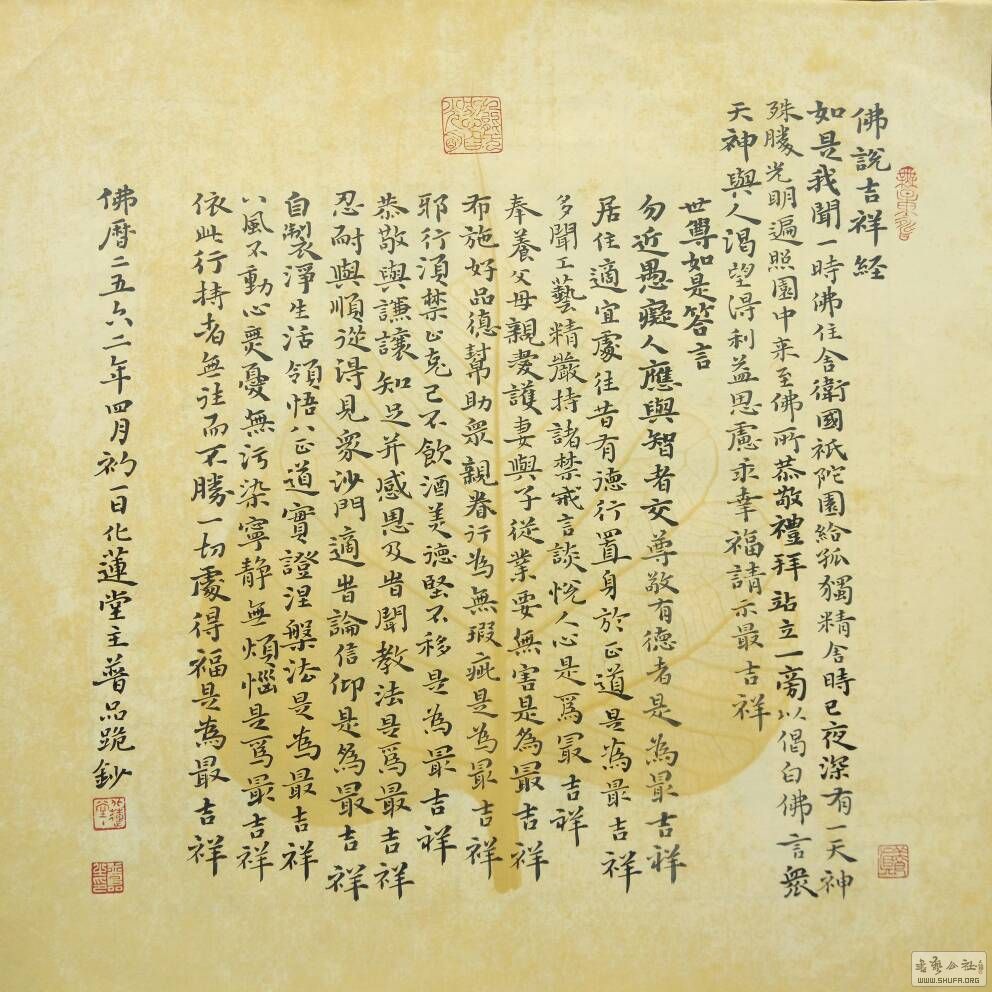 佛說吉祥経
如是我聞一時佛住舍衛國祇陀園給孤獨精舍時已夜深有一天神
殊勝光明遍照園中来至佛所恭敬禮拜站立一旁以偈白佛言衆
天神與人渴望得利益思慮求幸福請示最吉祥
世尊如是答言
勿近愚癡人應與智者交尊敬有德者是為最吉祥
居住適宜處往昔有德行置身於正道是為最吉祥
多聞工藝精嚴持諸禁戒言談悅人心是爲最吉祥
奉養父母親愛護妻與子從業要無害是為最吉祥
布施好品德幫助衆親眷行為無瑕疵是為最吉祥
耶行須禁止克己不飲酒美德堅不移是為最吉祥
恭敬與謙讓知足并感恩及時聞教法是爲最吉祥
忍耐與順從得見衆沙門適時論信仰是為最吉祥
自製淨生活領悟八正道實證涅槃法是為最吉祥
八風不動心無憂無污染寧静無煩惱是爲最吉祥
依此行持者無往而不勝一切處得福是為最吉祥
佛曆二五六二年四月初一日化蓮堂主普品跪鈔
WWW.SHUFA.ORG